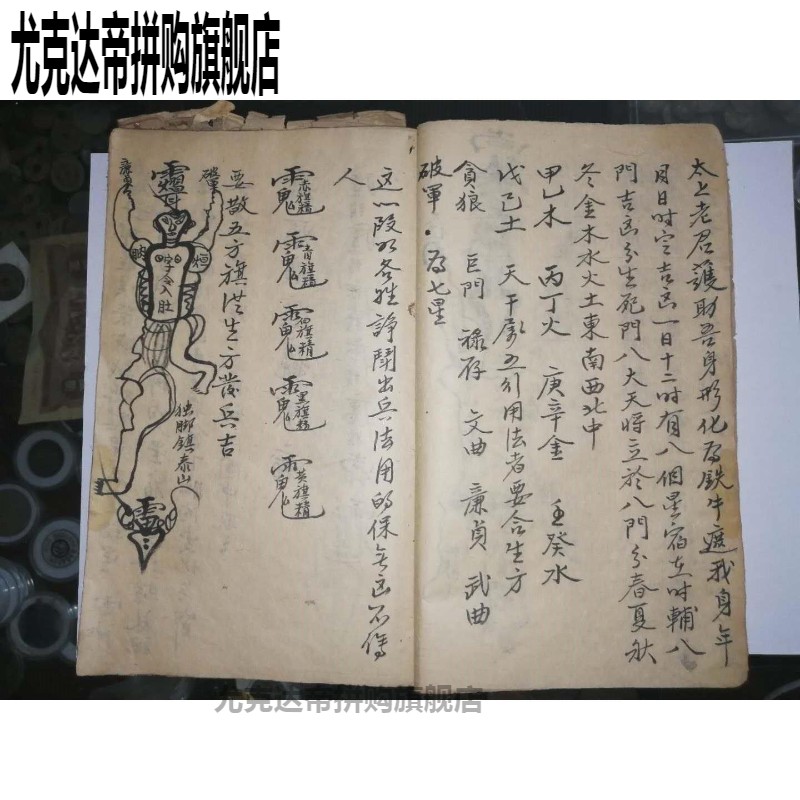 尤克达帝拼购旗舰店
太上老君護助吾身形化為鉄牛遮我身年
月日時定吉凶一日十二时有八個星宿在时輔八
門吉凶分生死門八大天將立於八門分春夏秋
冬金木水火土東南西北中
甲乙木 丙丁火 庚辛金 壬癸水
戊己土 天干屬五行用法者要合生方
貪狼 巨門 禄存 文曲 廉貞 武曲
破軍 為七星
这一段如各姓諍鬪出兵法用的保無凶不傷
人
赤旗精
青旗精
白旗精
黑旗精
英旗精
要敬五方旗洪生方發兵吉
字令入肚
独脚鎮泰山
雷
尤克达帝拼购旗舰店